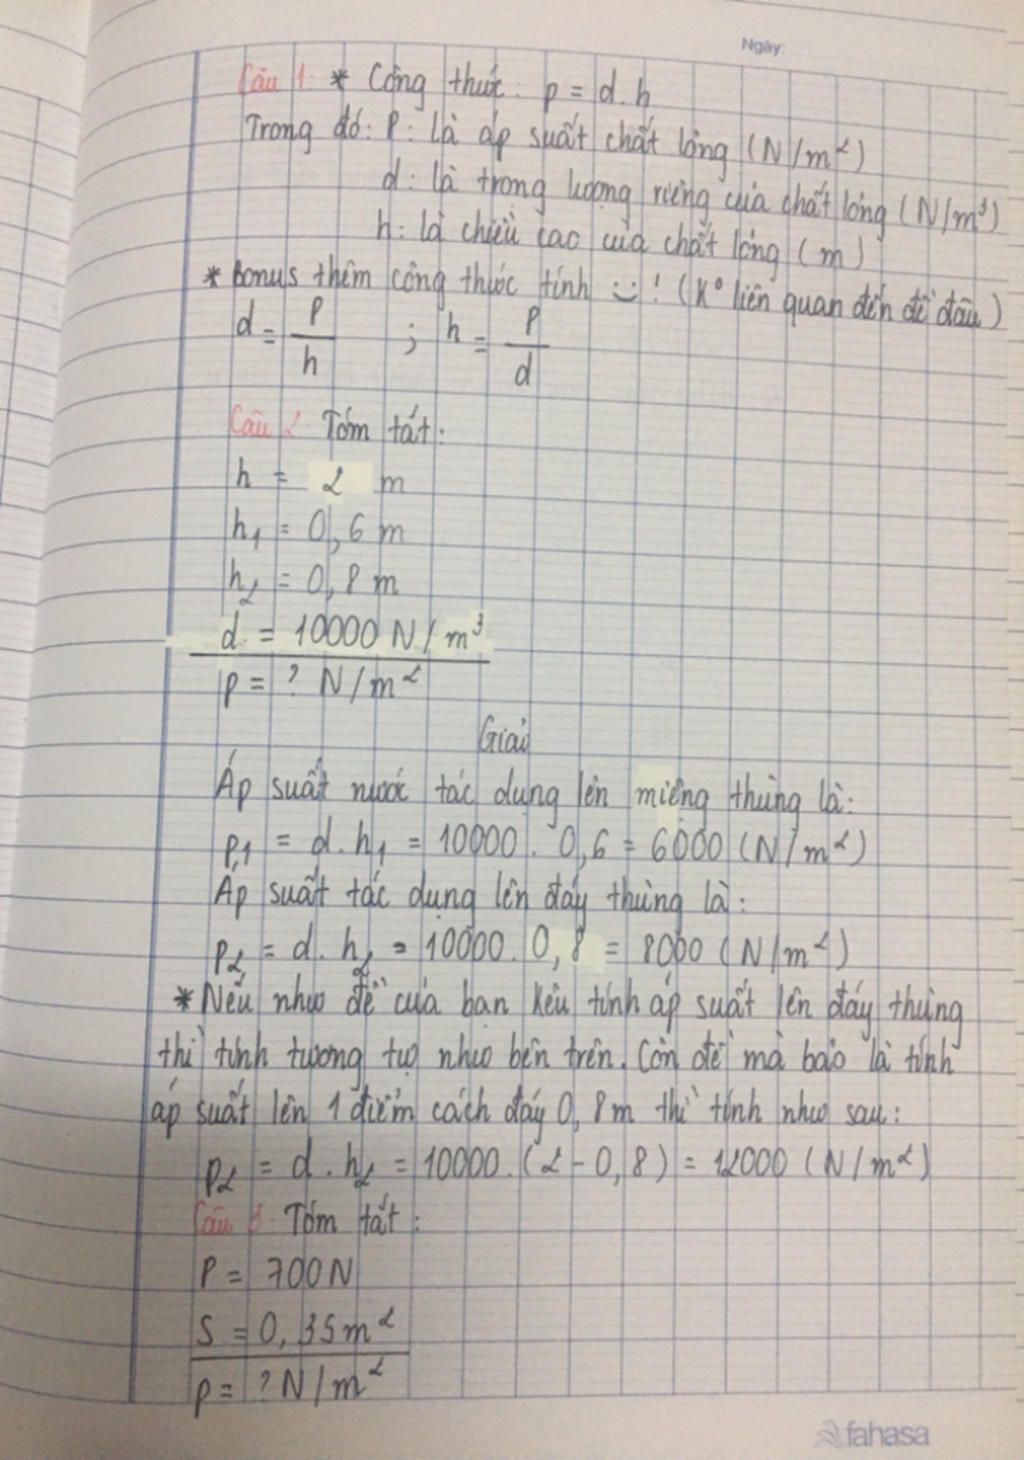 Ngày:
Câu 1: * Công thức: p = d.h
Trong đó: P: là áp suất chất lỏng (N/m²)
d: là trọng lượng riêng của chất lỏng (N/m³)
h: là chiều cao của chất lỏng (m)
* Bonus thêm công thức tính :)! (K° liên quan đến đề đâu)
d = P/h ; h = P/d
Câu 2: Tóm tắt:
h = 2 m
h₁ = 0,6 m
h₂ = 0,8 m
d = 10000 N/m³
p = ? N/m²
Giải
Áp suất nước tác dụng lên miệng thùng là:
p₁ = d.h₁ = 10000.0,6 = 6000 (N/m²)
Áp suất tác dụng lên đáy thùng là:
p₂ = d.h₂ = 10000.0,8 = 8000 (N/m²)
* Nếu như đề của bạn kêu tính áp suất lên đáy thùng
thì tính tương tự như bên trên. Còn đề mà bảo là tính
áp suất lên 1 điểm cách đáy 0,8m thì tính như sau:
p₂ = d.h₂ = 10000.(2-0,8) = 12000 (N/m²)
Câu 3: Tóm tắt:
P = 700N
S = 0,35m²
p = ? N/m²
fahasa